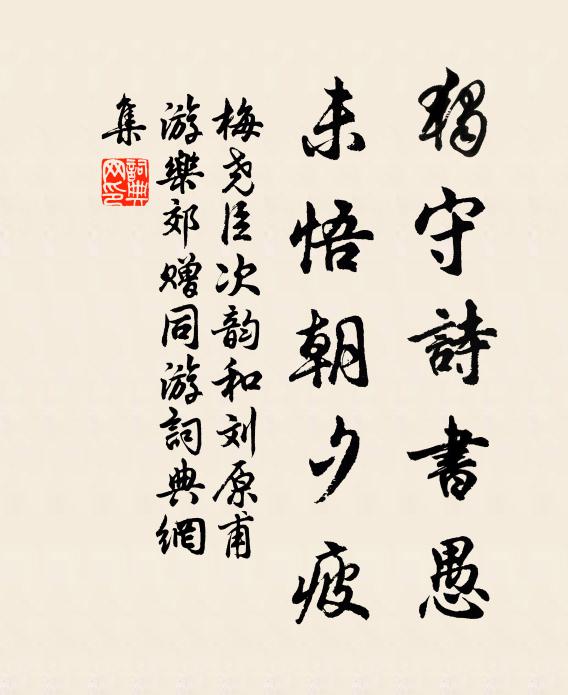 獨守詩書愚
未悟朝夕疲
梅尧臣次韵和刘原甫
游樂郊赠同游詞典網
集
詞典網印